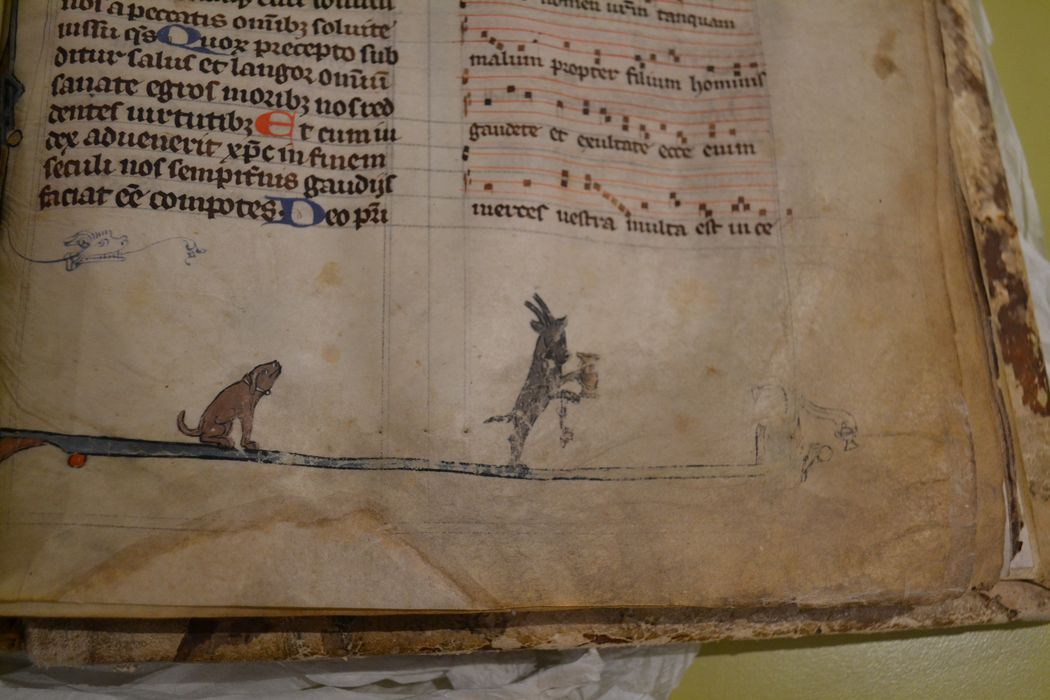 nos a peccatis omībꝫ soluite
iussu qs Quoꝝ precepto sub
ditur salus et langor omiū
sanate egros moribꝫ nos red
dentes uirtutibꝫ Et cum iu
dex aduenerit xp̄c in finem
seculi nos sempitͥnis gaudijs
faciat eē compotes. Deo pr̄i
nomen ur̄m tanquam
malum propter filium hominis
gaudete et exultate ecce enim
merces uestra multa est in ce